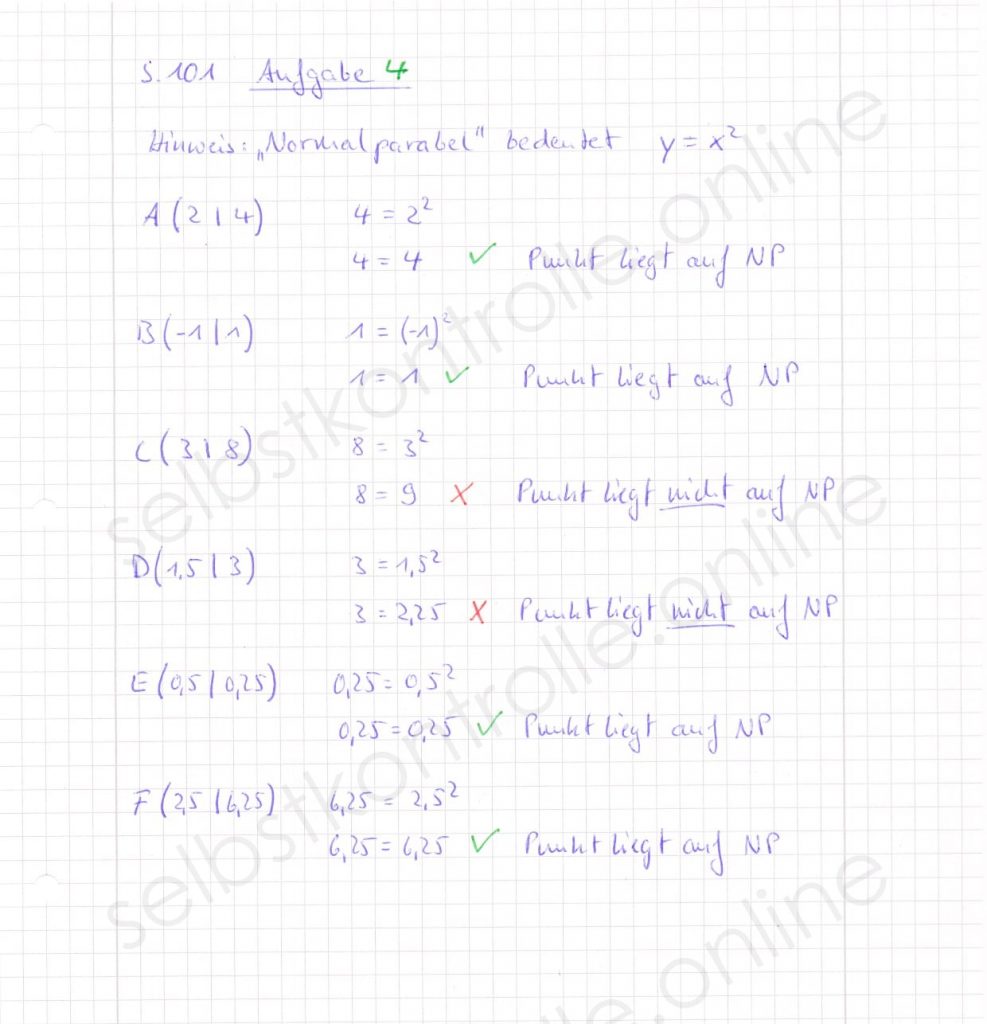 S. 101 Aufgabe 4
Hinweis: „Normalparabel" bedeutet y = x²
A (2 | 4) 4 = 2²
4 = 4 ✓ Punkt liegt auf NP
B (-1 | 1) 1 = (-1)²
1 = 1 ✓ Punkt liegt auf NP
C (3 | 8) 8 = 3²
8 = 9 X Punkt liegt nicht auf NP
D (1,5 | 3) 3 = 1,5²
3 = 2,25 X Punkt liegt nicht auf NP
E (0,5 | 0,25) 0,25 = 0,5²
0,25 = 0,25 ✓ Punkt liegt auf NP
F (2,5 | 6,25) 6,25 = 2,5²
6,25 = 6,25 ✓ Punkt liegt auf NP
selbstkontrolle.online
selbstkontrolle.online
selbstkontrolle.online